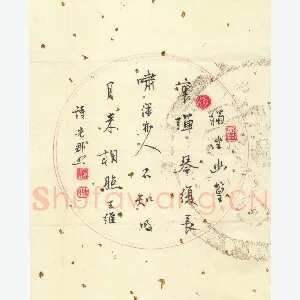 獨坐幽篁
裏彈琴復長
嘯深林人不知明
月来相照王維
詩
Shufawang.CN